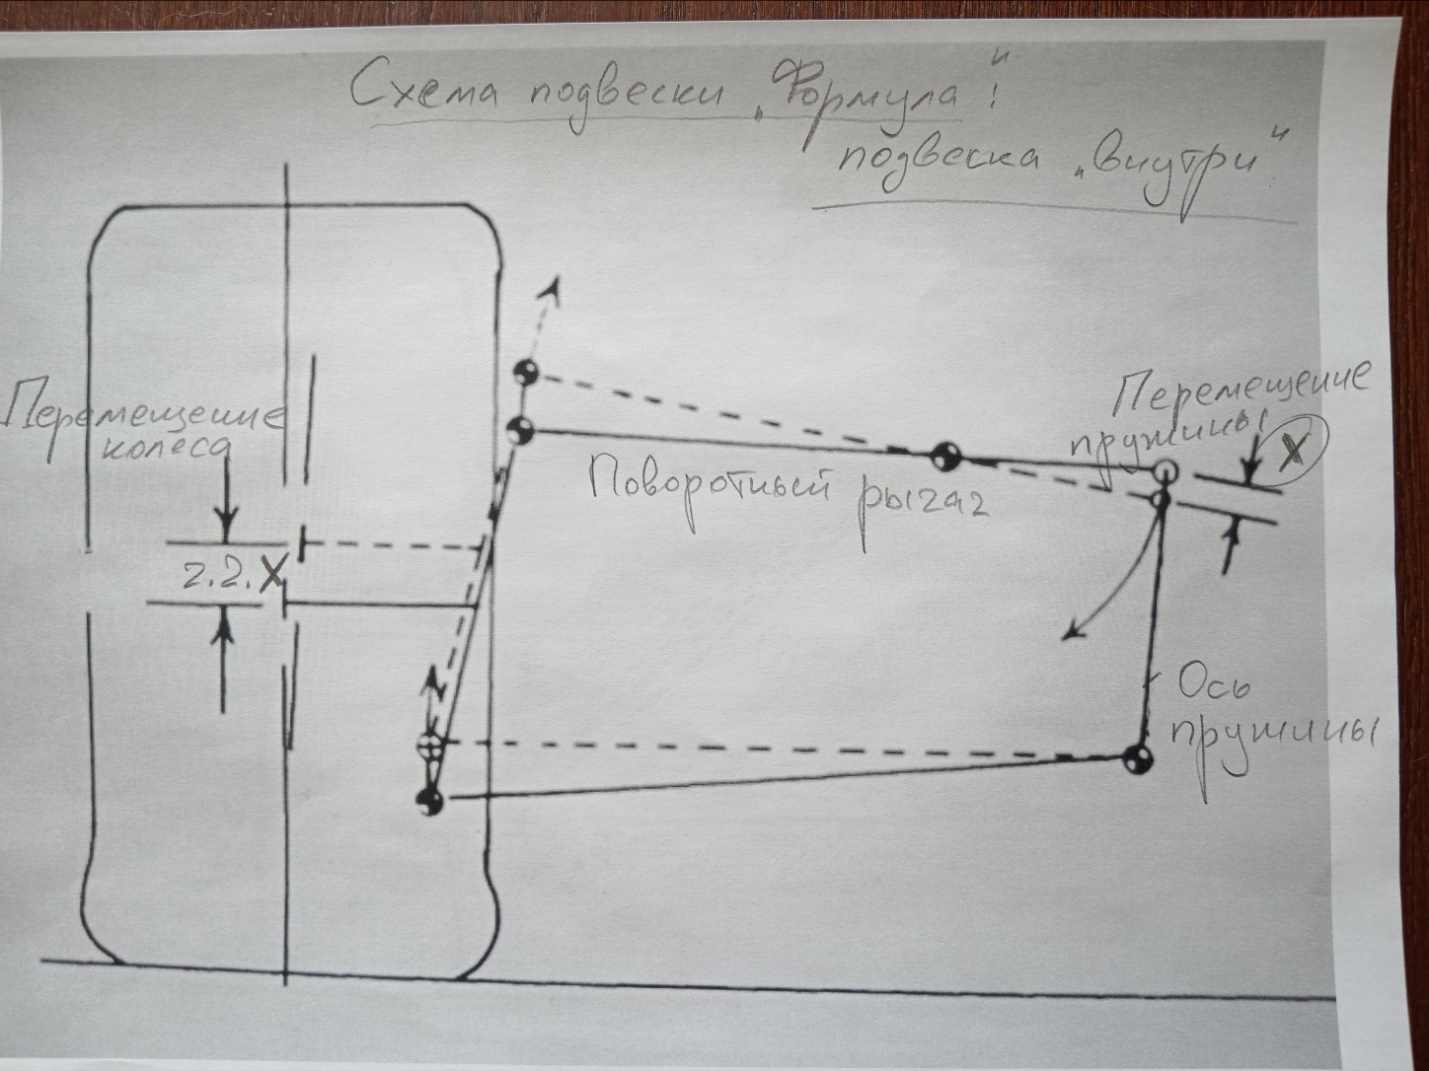 Схема подвески „Формула“!
подвеска „внутри“
Перемещение
колеса
2.2.X
Поворотный рычаг
Перемещение
пружины
X
Ось
пружины